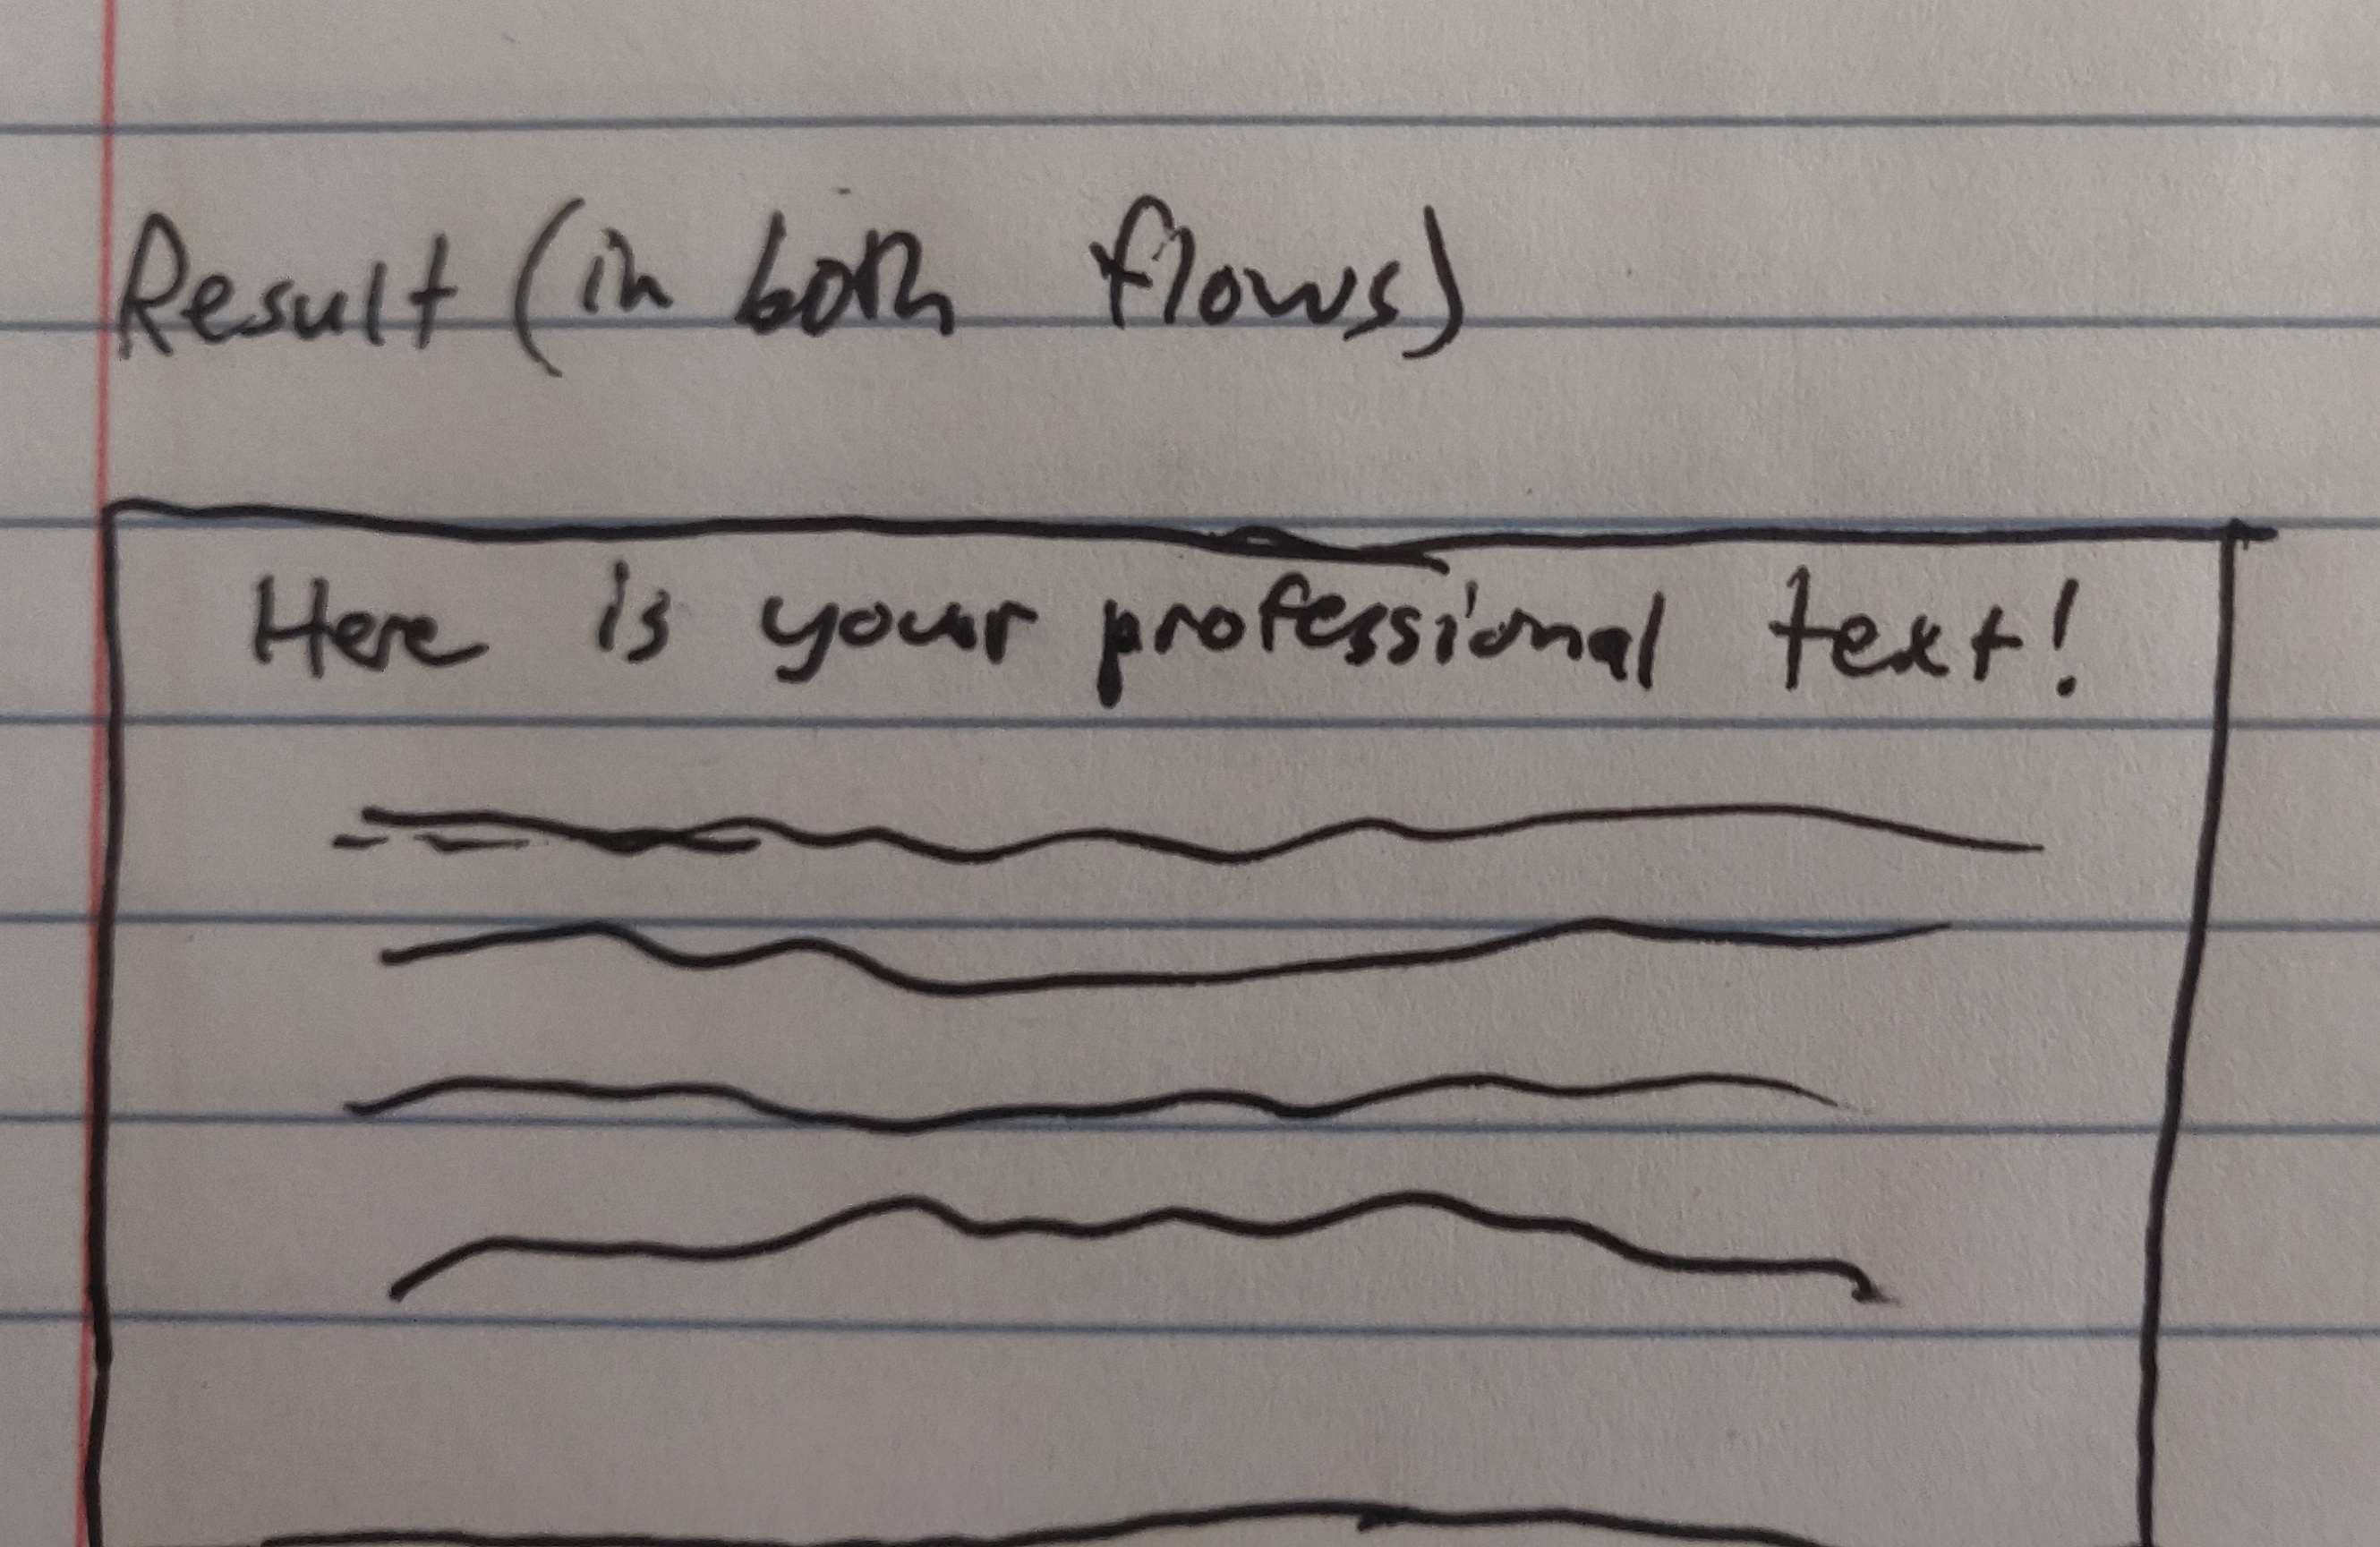 Result (in both flows)
Here is your professional text!